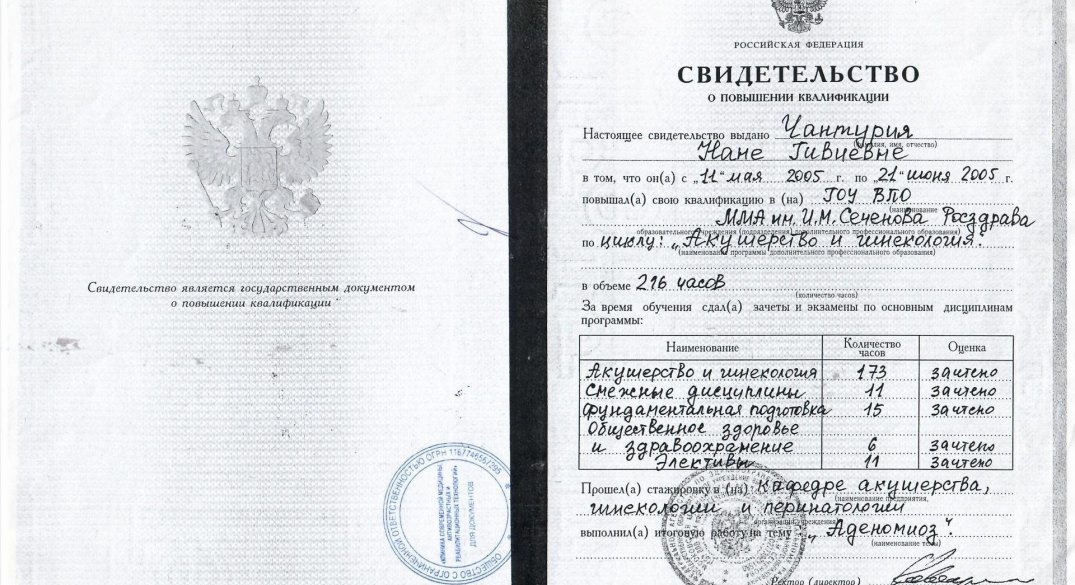 Свидетельство является государственным документом
о повышении квалификации
ОБЩЕСТВО С ОГРАНИЧЕННОЙ ОТВЕТСТВЕННОСТЬЮ ОГРН
«КЛИНИКА СОВРЕМЕННОЙ МЕДИЦИНЫ
АНТИВОЗРАСТНЫХ И
РЕАБИЛИТАЦИОННЫХ ТЕХНОЛОГИЙ»
ДЛЯ ДОКУМЕНТОВ
РОССИЙСКАЯ ФЕДЕРАЦИЯ
СВИДЕТЕЛЬСТВО
О ПОВЫШЕНИИ КВАЛИФИКАЦИИ
Настоящее свидетельство выдано Чантурия
(фамилия, имя, отчество)
Нане Гивиевне
в том, что он(а) с „11“ мая 2005 г. по „21“ июня 2005 г.
повышал(а) свою квалификацию в (на) ГОУ ВПО
(наименование
ММА им. И.М. Сеченова Росздрава
образовательного учреждения (подразделения) дополнительного профессионального образования)
по циклу: „Акушерство и гинекология“.
(наименование программы дополнительного профессионального образования)
в объеме 216 часов
(количество часов)
За время обучения сдал(а) зачеты и экзамены по основным дисциплинам
программы:
Наименование Количество часов Оценка
Акушерство и гинекология 173 зачтено
Смежные дисциплины 11 зачтено
Фундаментальная подготовка 15 зачтено
Общественное здоровье
и здравоохранение 6 зачтено
Элективы 11 зачтено
Прошел(а) стажировку в (на) кафедре акушерства,
(наименование предприятия,
гинекологии и перинатологии
организации, учреждения)
выполнил(а) итоговую работу на тему „Аденомиоз“.
(наименование темы)
Ректор (директор)